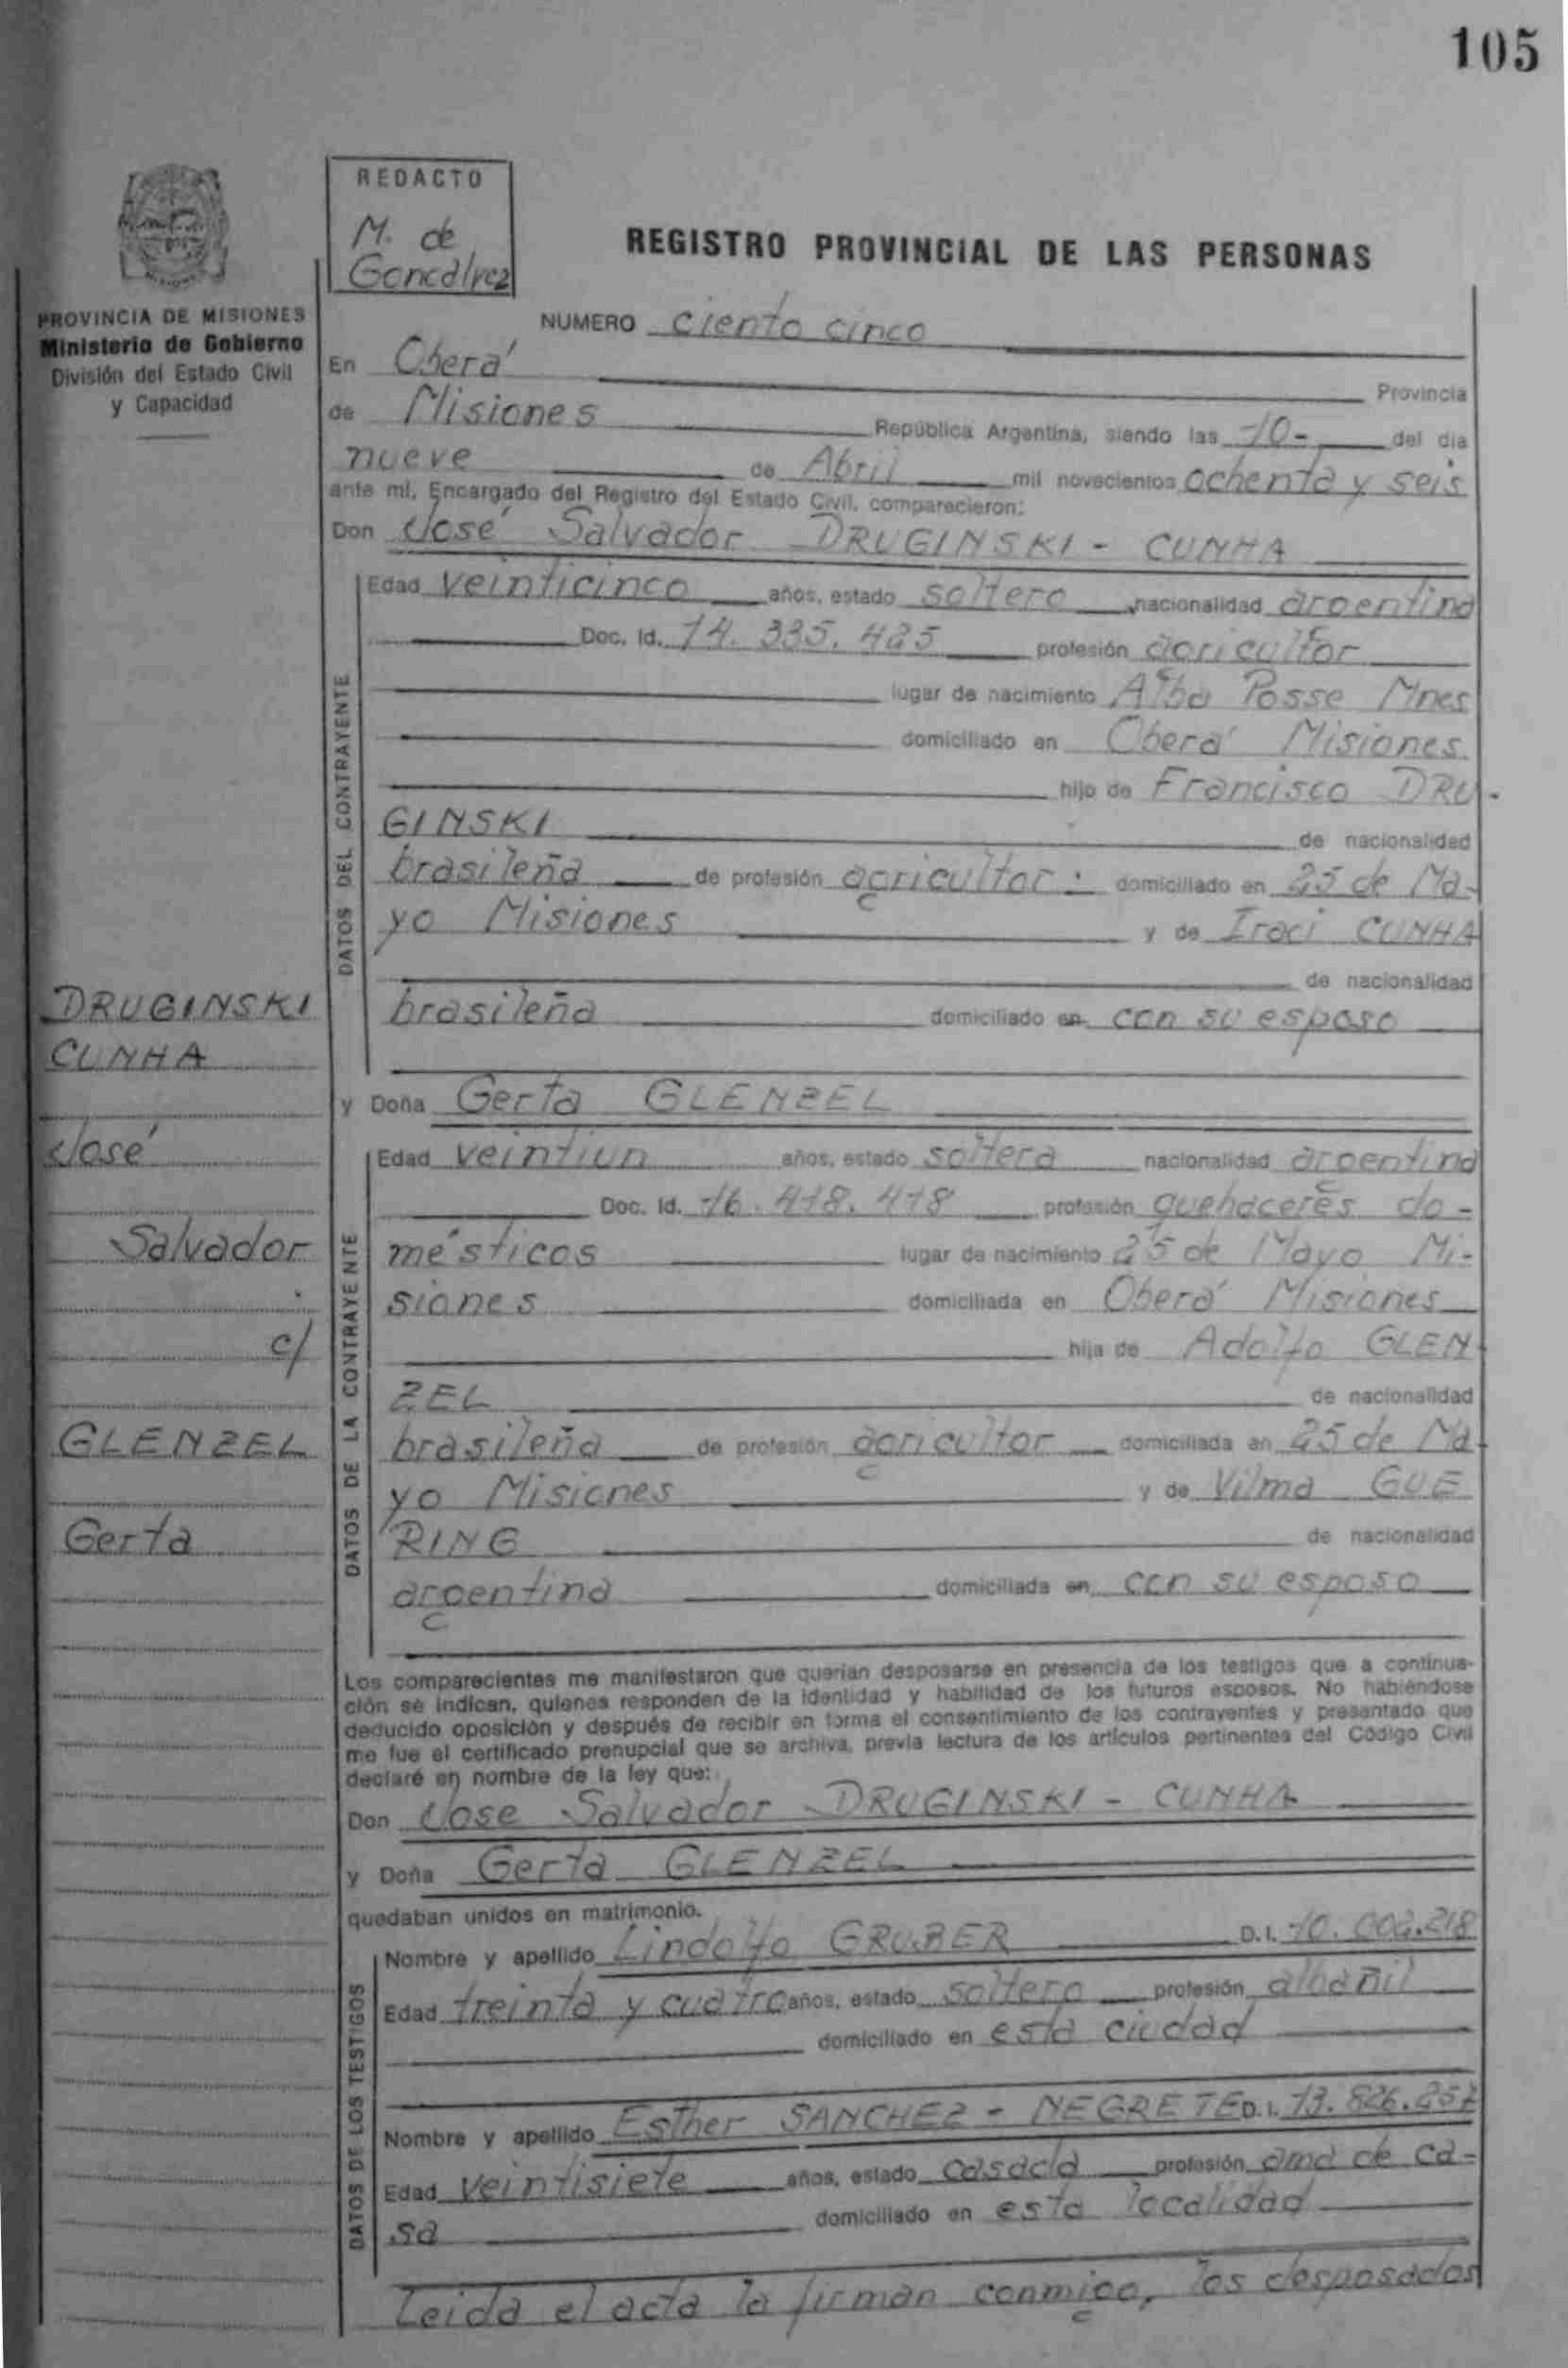 105
REDACTO
M. de
Goncalvez
REGISTRO PROVINCIAL DE LAS PERSONAS
PROVINCIA DE MISIONES
Ministerio de Gobierno
División del Estado Civil
y Capacidad
NUMERO ciento cinco
En Oberá Provincia
de Misiones República Argentina, siendo las 10- del dia
nueve de Abril mil novecientos ochenta y seis
ante mi, Encargado del Registro del Estado Civil, comparecieron:
Don José Salvador DRUGINSKI - CUNHA
DATOS DEL CONTRAYENTE
Edad veinticinco años, estado soltero nacionalidad argentina
Doc. Id. 14.335.425 profesión agricultor
lugar de nacimiento Alba Posse Mnes
domiciliado en Oberá Misiones
hijo de Francisco DRU-
GINSKI de nacionalidad
brasileña de profesión agricultor. domiciliado en 25 de Ma-
yo Misiones y de Iraci CUNHA
de nacionalidad
brasileña domiciliado en con su esposo
DRUGINSKI
CUNHA
José
Salvador
c/
GLENZEL
Gerta
y Doña Gerta GLENZEL
DATOS DE LA CONTRAYENTE
Edad veintiun años, estado soltera nacionalidad argentina
Doc. Id. 16.418.418 profesión quehaceres do-
mésticos lugar de nacimiento 25 de Mayo Mi-
siones domiciliada en Oberá Misiones
hija de Adolfo GLEN
ZEL de nacionalidad
brasileña de profesión agricultor domiciliada en 25 de Ma-
yo Misiones y de Vilma GUE
RING de nacionalidad
argentina domiciliada en con su esposo
Los comparecientes me manifestaron que querian desposarse en presencia de los testigos que a continua-
ción se indican, quienes responden de la identidad y habilidad de los futuros esposos. No habiéndose
deducido oposición y después de recibir en forma el consentimiento de los contrayentes y presentado que
me fue el certificado prenupcial que se archiva, previa lectura de los artículos pertinentes del Código Civil
declaré en nombre de la ley que:
Don José Salvador DRUGINSKI - CUNHA
y Doña Gerta GLENZEL
quedaban unidos en matrimonio.
DATOS DE LOS TESTIGOS
Nombre y apellido Lindolfo GRUBER D.I. 10.002.218
Edad treinta y cuatro años, estado soltero profesión albañil
domiciliado en esta ciudad
Nombre y apellido Esther SANCHEZ - NEGRETE D.I. 13.826.257
Edad veintisiete años, estado casada profesión ama de ca-
sa domiciliado en esta localidad
Leida el acta la firman conmigo, los desposados